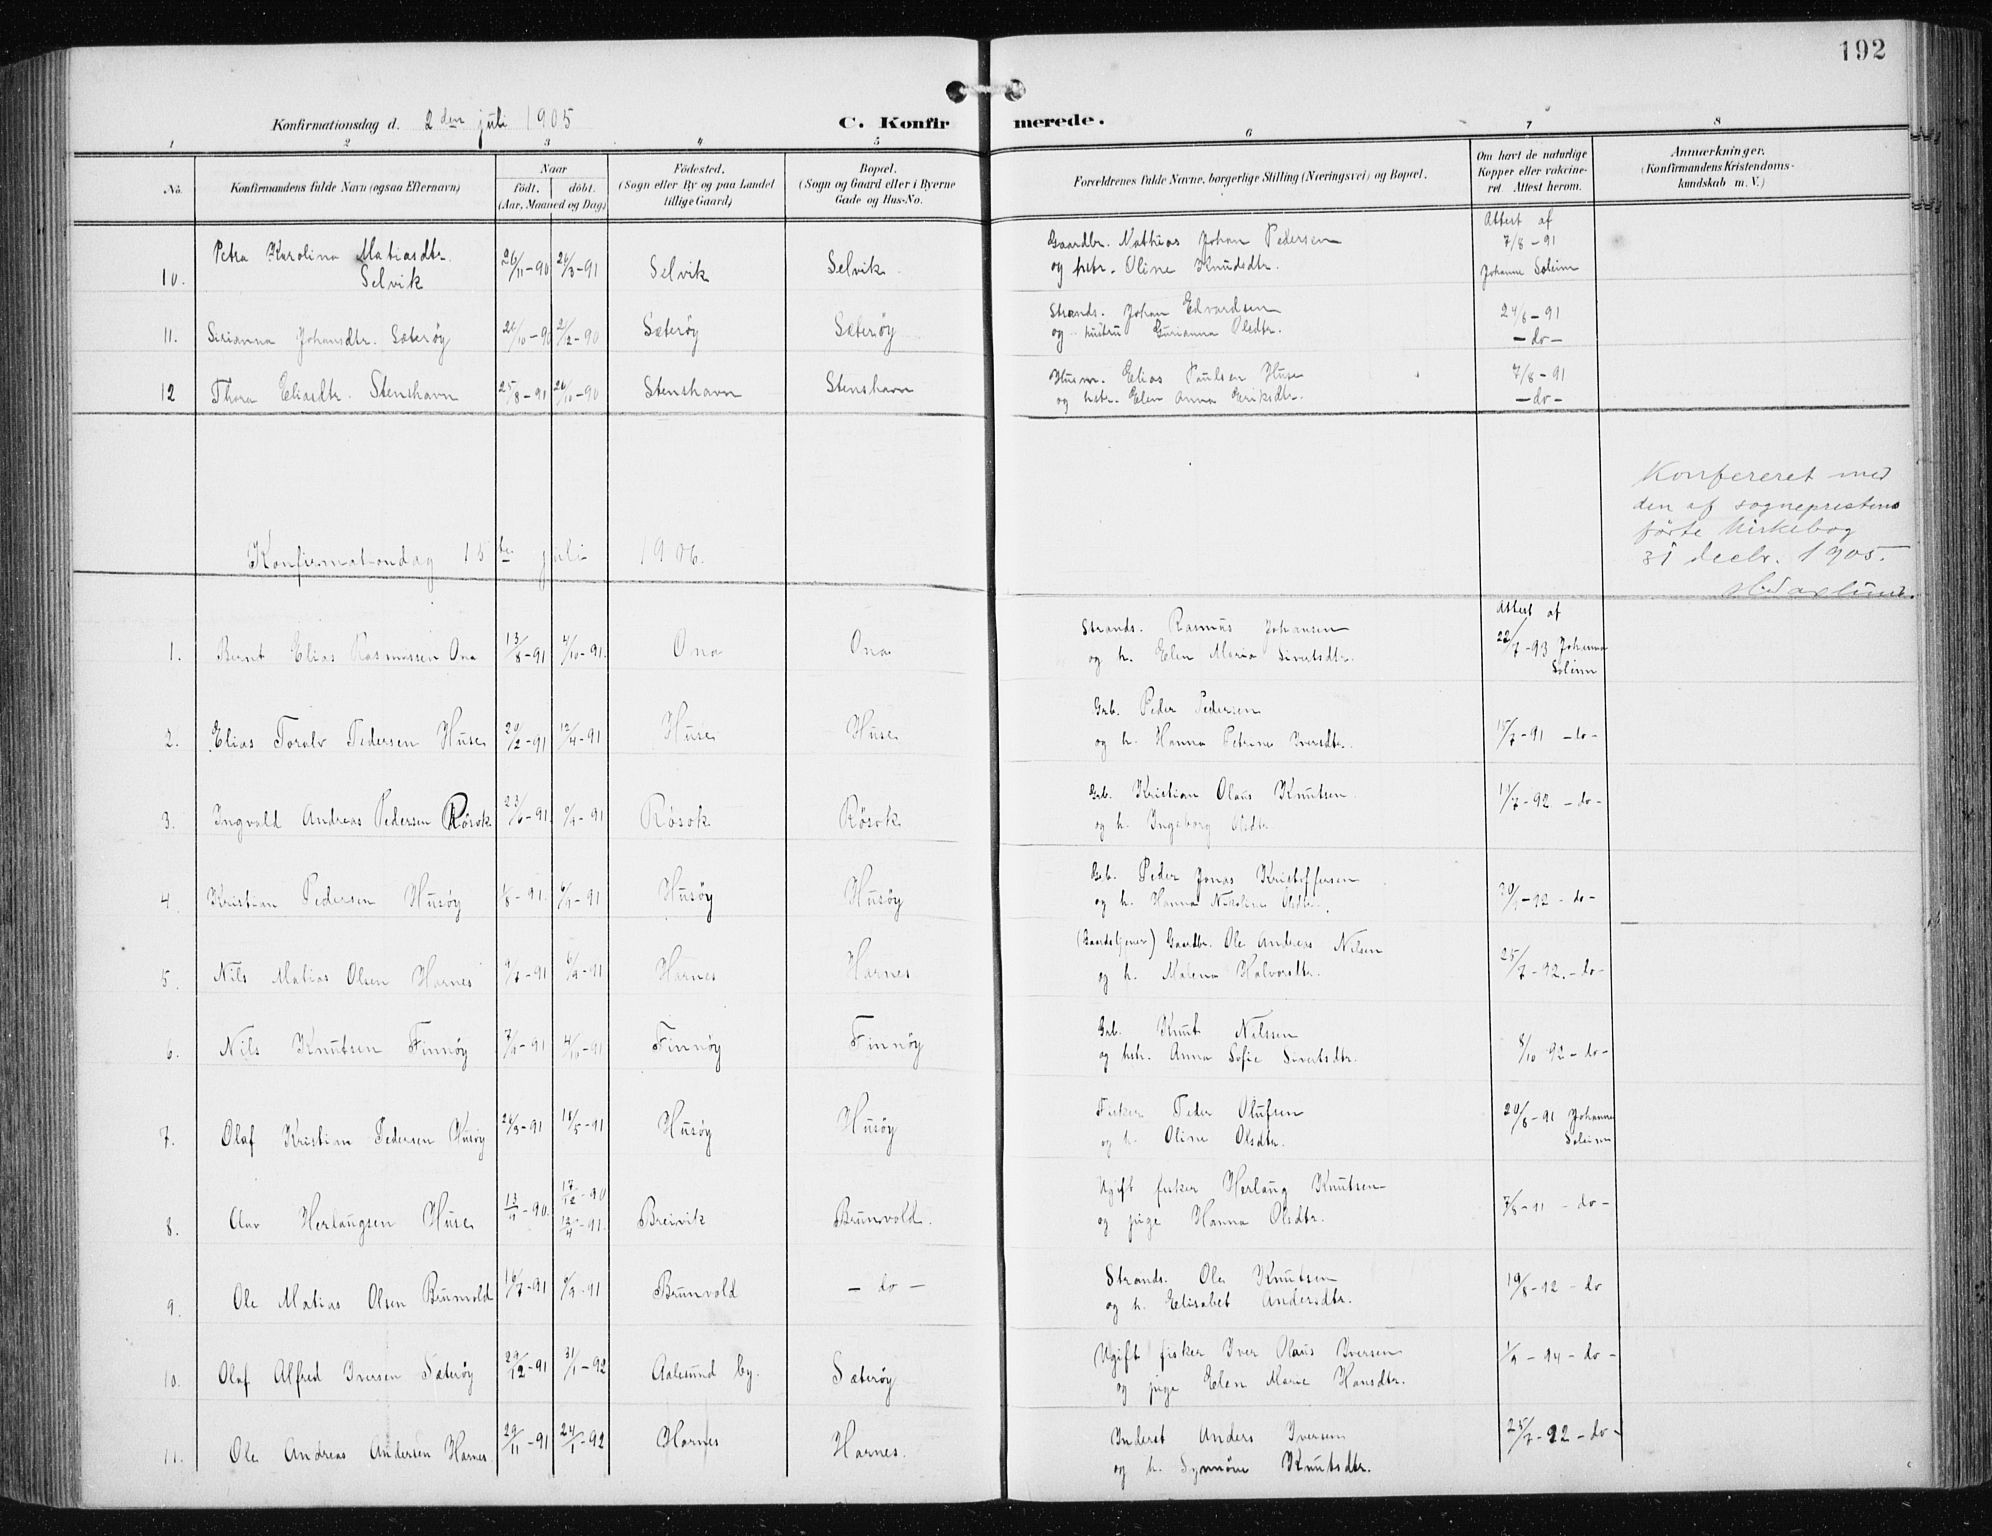 192
Konfirmationsdag d. 2den juli 1905
C. Konfirmerede.
1 2 3 4 5 6 7 8
No. Konfirmandens fulde Navn (ogsaa Efternavn)
Naar født. døbt. (Aar, Maaned og Dag)
Fødested. (Sogn eller By og paa Landet tillige Gaard)
Bopæl. (Sogn og Gaard eller i Byerne Gade og Hus-No.
Forældrenes fulde Navne, borgerlige Stilling (Næringsvei) og Bopæl.
Om havt de naturlige Kopper eller vakcineret. Attest herom.
Anmærkninger. (Konfirmandens Kristendomskundskab m. V.)
10. Petra Karolina Matiasdtr. Selvik 26/11-90 Selvik Selvik Gaardbr. Mathias Johan Pedersen og hstr. Oline Knudsdtr. Attest af 7/8-91 Johanne Soleim
11. Johansdtr. Sæterøy Sæterøy Sæterøy Strands. Johan Edvardsen og hustru Gurianna Olsdtr. 24/8-91 -do-
12 Thora Eliasdtr. Stenshavn 25/8-91 Stenshavn Stenshavn Husm. Elias Paulsen Huse og hstr. Elen Anna Eriksdtr. 7/8-91 -do-
Konfereret med
den af sogneprestens
førte kirkebog
31 decbr. 1905.
Konfirmationdag 15de juli 1906.
1. Bernt Elias Rasmussen Ona 13/8-91 4/10-91 Ona Ona Strands. Rasmus Johansen og h. Elen Maria Sivertsdtr. Attest af 22/7-93 Johanna Soleim
2. Elias Toralv Pedersen Huse 20/2-91 12/4-91 Huse Huse Grb. Peder Pedersen og h. Hanna Petrine Iversdtr. 15/7-91 -do-
3. Ingvald Andreas Pedersen Røsok 23/6-91 Røsok Røsok Grb. Kristian Olaus Knutsen og h. Ingeborg Olsdtr. -92 -do-
4. Kristian Pedersen Husøy -91 -91 Husøy Husøy Grb. Peder Jonas Kristoffersen og h. Hanna Nikoline Olsdtr. -92 -do-
5. Nils Matias Olsen Harnes -91 -91 Harnes Harnes (Gaardstjener) Gaardbr. Ole Andreas Nilsen og h. Malena Halvorsdtr. 25/7-92. -do-
6. Nils Knutsen Finnøy -91 4/10-91 Finnøy Finnøy Grb. Knut Nilssen og hstr. Anna Sofie Sivertsdtr. 8/10 92 -do-
7. Olaf Kristian Pedersen Husøy -91 18/5-91 Husøy Husøy Fisker Peder Olufsen og h. Oline Olsdtr. 20/8-91 Johanne Soleim
8. Herlaugsen Huse -90. 17/12-90 13/4-91. Breivik Brunvold. Ugift fisker Herlaug Knutsen og pige Hanna Olsdtr. 7/8-91 -do-
9. Ole Matias Olsen Brunvold 16/7-91 -91 Brunvold -do- Strands. Ole Knutsen og h. Elisabet Andersdtr. 19/8-92 -do
10. Olaf Alfred Iversen Sæterøy 29/12-91 31/1-92 Aalesund by. Sæterøy Ugift fisker Iver Olaus Iversen og pige Elen Marie Hansdtr. -94 -do-
11. Ole Andreas Andersen Harnes. 29/11-91 24/1-92 Harnes Harnes. Inderst Anders Iversen og h. Synnøve Knutsdtr. 25/7-92 -do-